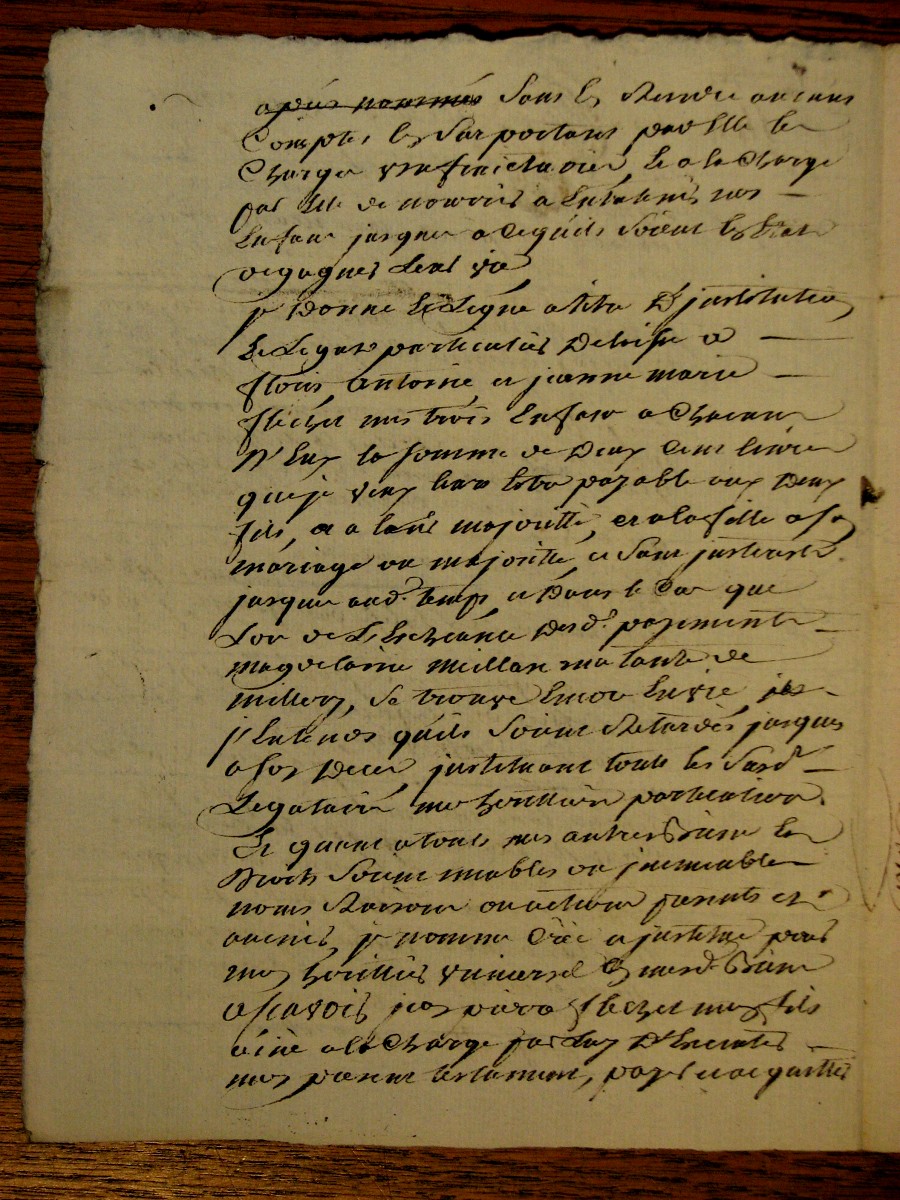 après nommés sans luy Rendre aucuns
Comptes luy Suportant par Elle les
Charges usufructuaires, Et a la Charge
par Elle de nourrir et Entretenir nos
Enfans jusques a Cequils soient En Etat
de gagner Leur vie
je donne Et Legue a titre D'institution
Et Legat particulier De hoirie a
fleury antoine et jeanne marie
flechet mes trois Enfans a Chacun
D'Eux la somme de Deux Cent livres
que je veux Leur Etre payable aux Deux
fils, a leur majorité, et a la fille a son
mariage ou majorité et sans interest
jusques aud. temps et Dans le Cas que
Lors de L'Echeance Desd. payements
magdelaine meillan ma tante de
millery, se trouve Encor En vie,
j'Entends quils soient Retardés jusques
a son Deces instituant toute les Susd.
Legataires mes heritiers particuliers.
Et quant a tous mes autres Biens Et
Droits soient meubles ou immeubles
noms Raisons ou actions presents et
avenirs, je nomme Crée et institue pour
mon heritier universel En mesd. Biens
a scavoir jean pierre flechet mon fils
ainé a la Charge par Luy D'Executer
mon present testament, payer et acquitter